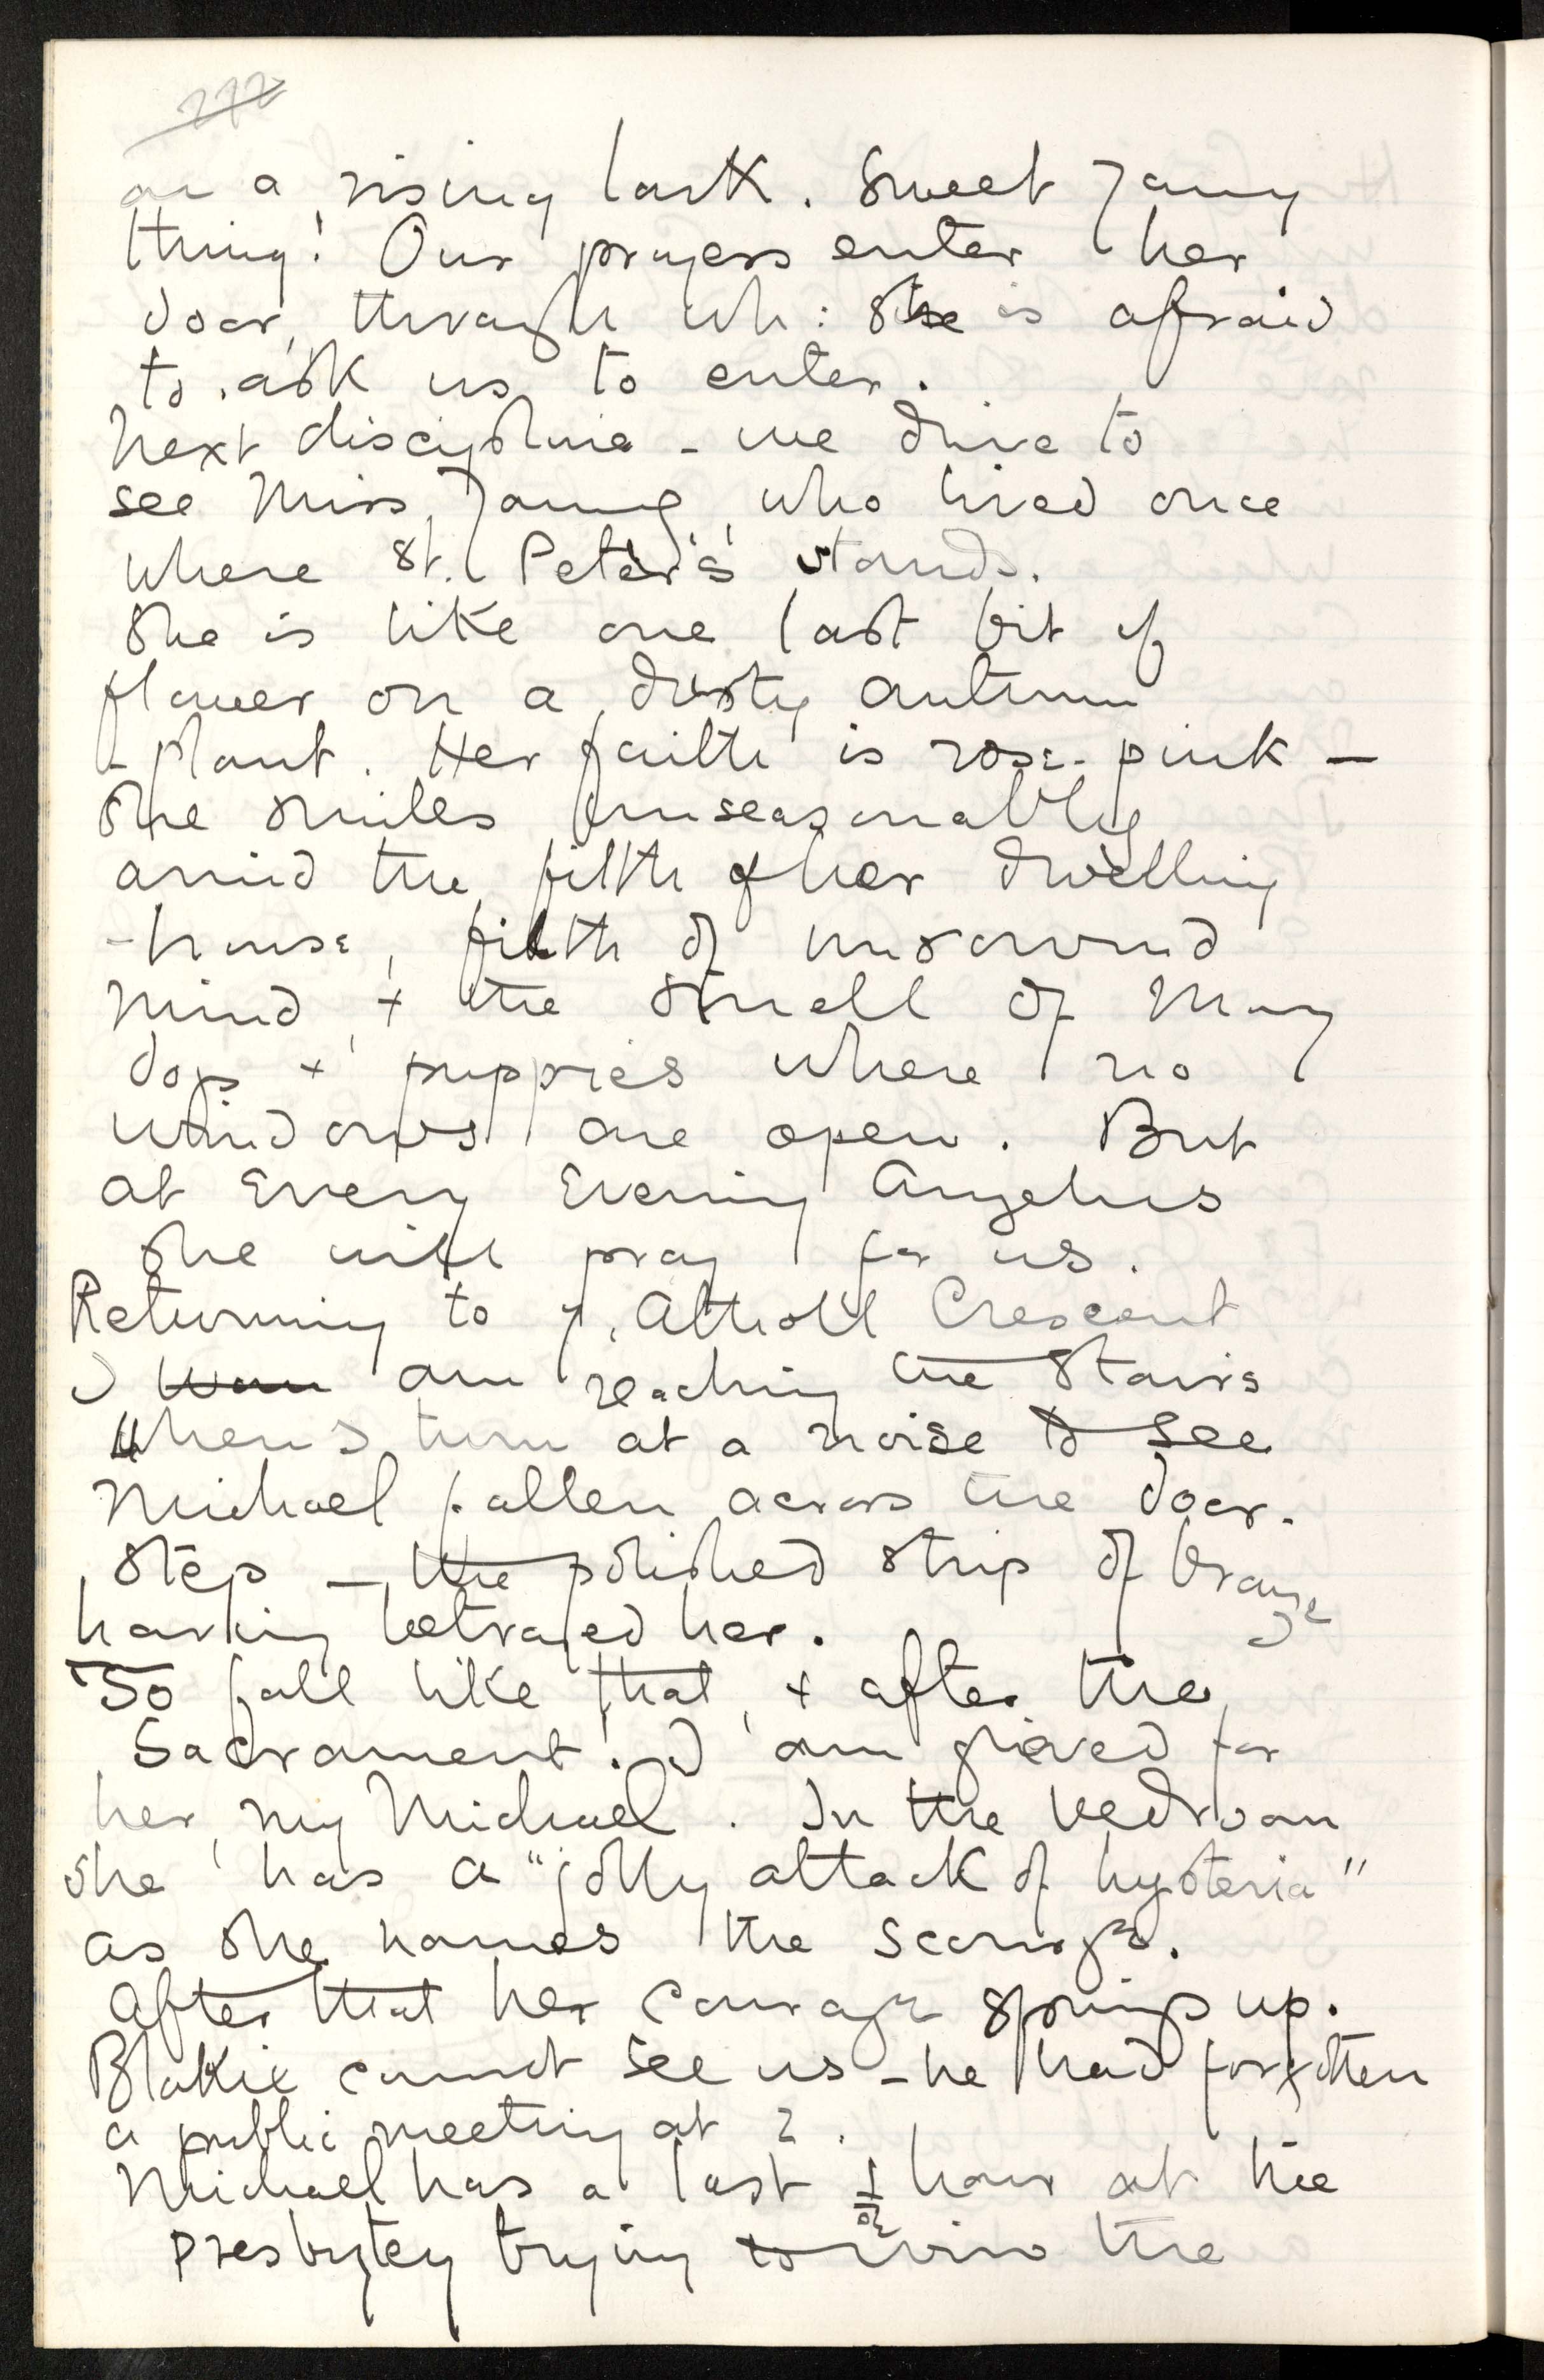 272
on a rising lark. Sweet young
thing! Our prayers enter her
door, through wh: she is afraid
to ask us to enter.
Next discipline - we drive to
see Miss Young, who lived once
where St. Peter's stands.
She is like one last bit of
flower on a dusty autumn
-plant. Her faith is rose-pink -
She smiles unseasonably
amid the filth of her dwelling
-house, filth of unsound
mind, + the smell of many
dogs + puppies where no
windows are open. But
at Every Evening Angelus
she will pray for us.
Returning to 7, Atholl Crescent
I am reaching the stairs
when I turn at a noise to see
Michael fallen across the door-
step - the polished strip of
having betrayed her.
To fall like that, + after the
Sacrament! I am grieved for
her, my Michael. In the bedroom
she has a "jolly attack of hysteria"
as she names the scourge.
After that her courage springs up.
Blakie cannot see us - he had forgotten
a public meeting at 2.
Michael has a last ½ hour at the
presbytery trying to the